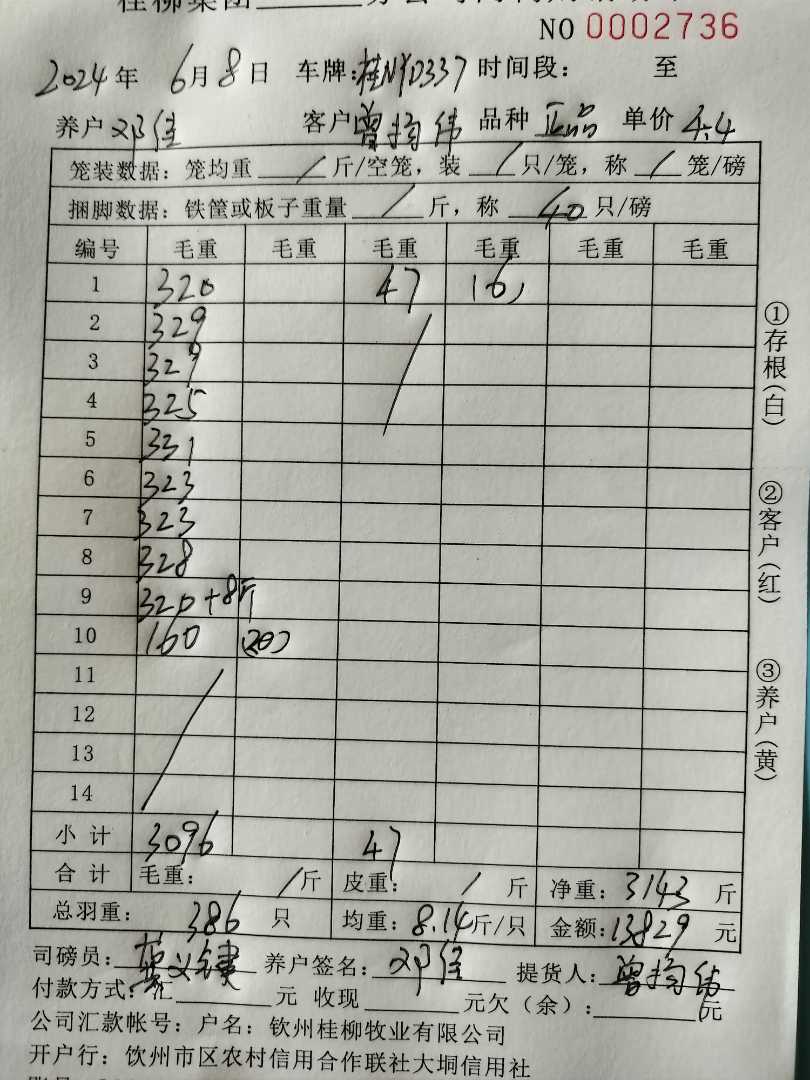 桂柳集团
NO 0002736
2024年 6月8日 车牌:桂N 时间段: 至
养户 邓佳 客户 曾 伟 品种 正品 单价 4.4
笼装数据: 笼均重 / 斤/空笼, 装 / 只/笼, 称 / 笼/磅
捆脚数据: 铁筐或板子重量 / 斤, 称 40 只/磅
编号 毛重 毛重 毛重 毛重 毛重 毛重
1 320 47 (6)
2 329
3 329
4 325
5 331
6 323
7 323
8 328
9 320+8斤
10 160 (20)
11
12
13
14
小计 3096 47
合计 毛重: / 斤 皮重: / 斤 净重: 3143 斤
总羽重: 386 只 均重: 8.14斤/只 金额: 13829 元
司磅员: 养户签名: 邓佳 提货人: 曾 伟
付款方式: 汇 元 收现 元欠(余): 元
公司汇款帐号: 户名: 钦州桂柳牧业有限公司
开户行: 钦州市区农村信用合作联社大垌信用社
①存根(白)
②客户(红)
③养户(黄)